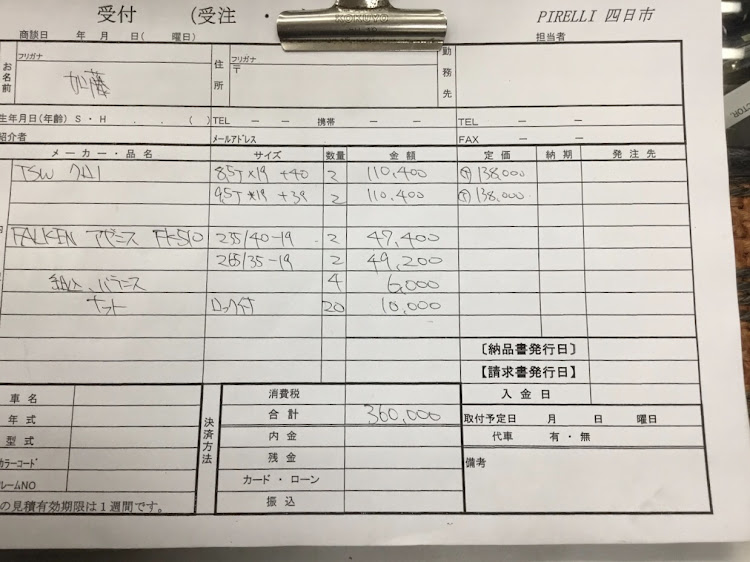 受付 (受注 ・
KOKUYO
PIRELLI 四日市
商談日 年 月 日( 曜日)
担当者
フリガナ
お名前 加藤
住所 フリガナ
〒
勤務先
生年月日(年齢) S・H . . ( )
TEL － － 携帯 － －
TEL － －
紹介者
メールアドレス
FAX － －
メーカー・品名 サイズ 数量 金額 定価 納期 発注先
TSW 8.5J×19 +40 2 110,400 138,000
9.5J×19 +39 2 110,400 138,000
FALKEN アゼニス FK510 235/40-19 2 47,400
265/35-19 2 49,200
組込、バランス 4 6,000
ナット ロック付 20 10,000
〔納品書発行日〕
【請求書発行日】
入金日
車名
年式
型式
カラーコード
レームNO
の見積有効期限は1週間です。
決済方法
消費税
合計 360,000
内金
残金
カード・ローン
振込
取付予定日 月 日 曜日
代車 有・無
備考
CTOR